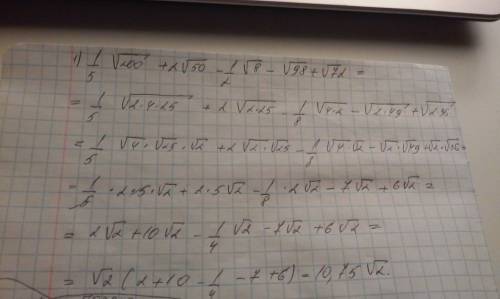 1) 1/5 √200 + 2√50 - 1/2 √8 - √98 + √72 =
= 1/5 √2·4·25 + 2√2·25 - 1/8 √4·2 - √2·49 + √2·36
= 1/5 √4·√25·√2 + 2√2·√25 - 1/8 √4·√2 - √2·√49 + √2·√36 =
= 1/5 · 2·5·√2 + 2·5√2 - 1/8 · 2√2 - 7√2 + 6√2 =
= 2√2 + 10√2 - 1/4 √2 - 7√2 + 6√2 =
= √2 (2 + 10 - 1/4 - 7 + 6) = 10,75√2.